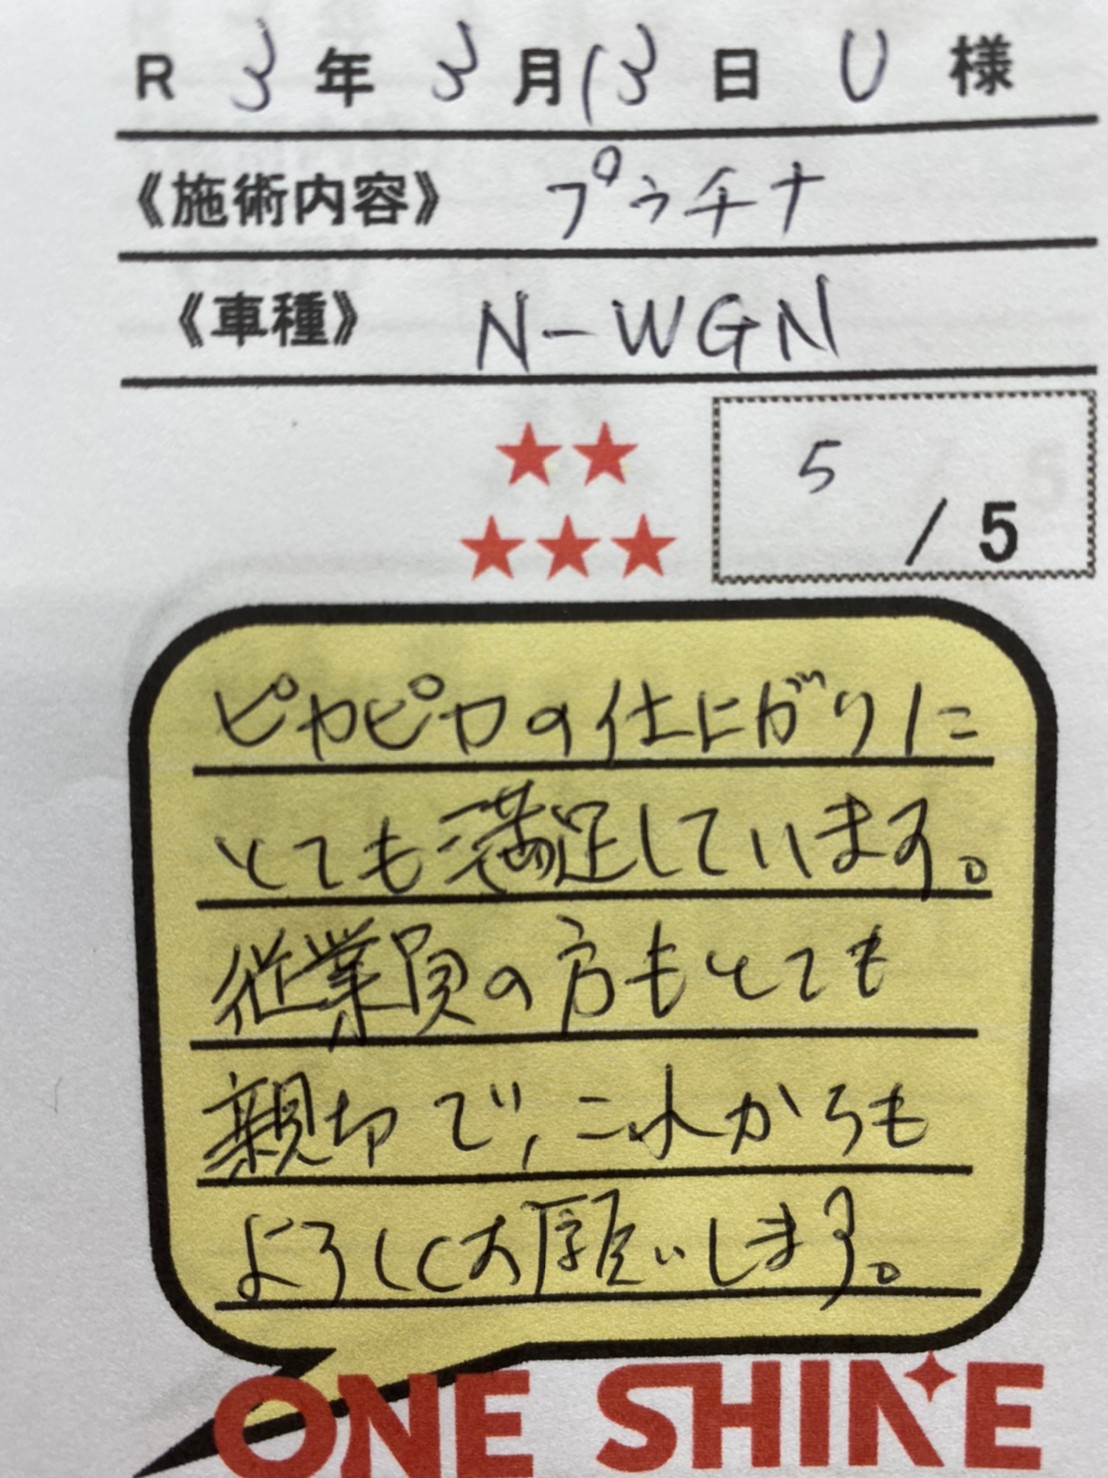 R 3年 3月13日 U 様
《施術内容》 プラチナ
《車種》 N-WGN
★★
★★★
5 / 5
ピカピカの仕上がりに
とても満足しています。
従業員の方もとても
親切で、これからも
よろしくお願いします。
ONE SHINE